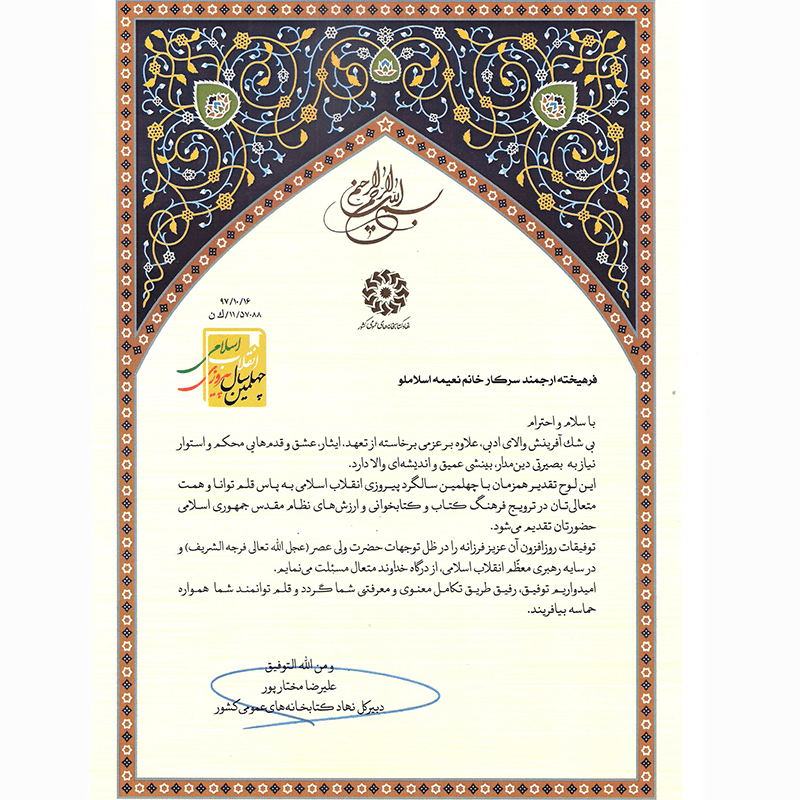 بسم الله الرحمن الرحیم
نهاد کتابخانه‌های عمومی کشور
۹۷/۱۰/۱۶
۱۱/۵۷۰۸۸/ک ن
چهلمین سال پیروزی انقلاب اسلامی
فرهیخته ارجمند سرکار خانم نعیمه اسلاملو
با سلام و احترام
بی شك آفرینش والای ادبی، علاوه بر عزمی برخاسته از تعهد، ایثار، عشق و قدم‌هایی محکم و استوار
نیاز به بصیرتی دین‌مدار، بینشی عمیق و اندیشه‌ای والا دارد.
این لوح تقدیر همزمان با چهلمین سالگرد پیروزی انقلاب اسلامی به پاس قلم توانا و همت
متعالی‌تان در ترویج فرهنگ کتاب و کتابخوانی و ارزش‌های نظام مقدس جمهوری اسلامی
حضورتان تقدیم می‌شود.
توفیقات روزافزون آن عزیز فرزانه را در ظل توجهات حضرت ولی عصر (عجل الله تعالی فرجه الشریف) و
در سایه رهبری معظّم انقلاب اسلامی، از درگاه خداوند متعال مسئلت می‌نمایم.
امیدواریم توفیق، رفیق طریق تکامل معنوی و معرفتی شما گردد و قلم توانمند شما همواره
حماسه بیافریند.
و من الله التوفیق
علیرضا مختارپور
دبیرکل نهاد کتابخانه‌های عمومی کشور